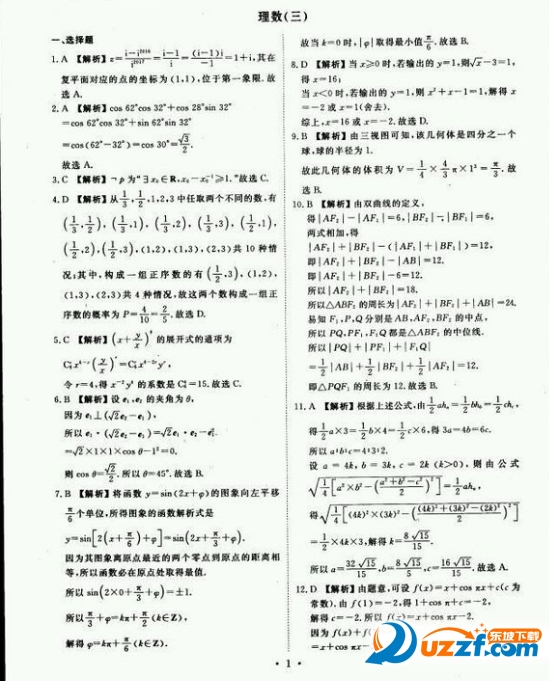 理数(三)
一、选择题
1. A 【解析】z=(i-i^2016)/i^2017=(i-1)/i=((i-1)i)/(i·i)=1+i,其在
复平面对应的点的坐标为(1,1),位于第一象限.故
选 A.
2. A 【解析】cos 62°cos 32°+cos 28°sin 32°
=cos 62°cos 32°+sin 62°sin 32°
=cos(62°-32°)=cos 30°=√3/2.
故选 A.
3. C 【解析】¬p为“∃x₀∈R,x₀-x₀⁻¹≥1.”故选 C.
4. D 【解析】从1/3,1/2,1,2,3中任取两个不同的数,有
(1/3,1/2),(1/3,1),(1/3,2),(1/3,3),(1/2,1),
(1/2,2),(1/2,3),(1,2),(1,3),(2,3)共10种情
况;其中,构成一组正序数的有(1/2,3),(1,2),
(1,3),(2,3)共4种情况,故这两个数构成一组正
序数的概率为P=4/10=2/5.故选 D.
5. C 【解析】(x+y/x)^6的展开式的通项为
C₆^r x^(6-r)(y/x)^r=C₆^r x^(6-2r)y^r,
令r=4,得x⁻²y⁴的系数是C₆⁴=15.故选 C.
6. B 【解析】设e₁,e₂的夹角为θ,
因为e₁⊥(√2e₂-e₁),
所以e₁·(√2e₂-e₁)=√2e₁·e₂-e₁²
=√2×1×1×cos θ-1²=0.
则cos θ=√2/2.所以θ=45°.故选 B.
7. B 【解析】将函数y=sin(2x+φ)的图象向左平移
π/6个单位,所得图象的函数解析式是
y=sin[2(x+π/6)+φ]=sin(2x+π/3+φ).
因为其图象离原点最近的两个零点到原点的距离相
等,所以函数必在原点处取得最值.
所以sin(2×0+π/3+φ)=±1.
所以π/3+φ=kπ+π/2(k∈Z),
解得φ=kπ+π/6(k∈Z).
故当k=0时,|φ|取得最小值π/6.故选 B.
8. D 【解析】当x≥0时,若输出的y=1,则√x-3=1,
得x=16;
当x<0时,若输出的y=1,则x²+x-1=1,解得x
=-2或x=1(舍去).
综上,x=16或x=-2.故选 D.
9. B 【解析】由三视图可知,该几何体是四分之一个
球,球的半径为1.
故此几何体的体积为V=1/4×4/3π×1³=π/3.故
选 B.
10. B 【解析】由双曲线的定义,
得|AF₂|-|AF₁|=6,|BF₂|-|BF₁|=6,
两式相加,得
|AF₂|+|BF₂|-(|AF₁|+|BF₁|)=12,
即|AF₂|+|BF₂|-|AB|=12,
即|AF₂|+|BF₂|-6=12.
所以|AF₂|+|BF₂|=18.
所以△ABF₂的周长为|AF₂|+|BF₂|+|AB|=24.
易知F₁,P,Q分别是AB,AF₂,BF₂的中点,
所以PQ,PF₁,F₁Q都是△ABF₂的中位线.
所以|PQ|+|PF₁|+|F₁Q|
=1/2|AB|+1/2|BF₂|+1/2|AF₂|=12,
即△PQF₁的周长为12.故选 B.
11. A 【解析】根据上述公式,由1/2ah_a=1/2bh_b=1/2ch_c,
得1/2a×3=1/2b×4=1/2c×6,得3a=4b=6c.
所以a:b:c=4:3:2.
设a=4k,b=3k,c=2k(k>0),则由公式
√(1/4[a²×b²-((a²+b²-c²)/2)²])=1/2ah_a,
得√(1/4[(4k)²×(3k)²-(((4k)²+(3k)²-(2k)²)/2)²])
=1/2×4k×3,解得k=8√15/15.
所以a=32√15/15,b=8√15/5,c=16√15/15.故选 A.
12. D 【解析】由题意,可设f(x)=x+cos πx+c(c为
常数).由f(1)=-2,得1+cos π+c=-2,
解得c=-2.所以f(x)=x+cos πx-2.
因为f(x)+f(
=x+cos πx-
• 1 •
东坡下载
uzzf.com